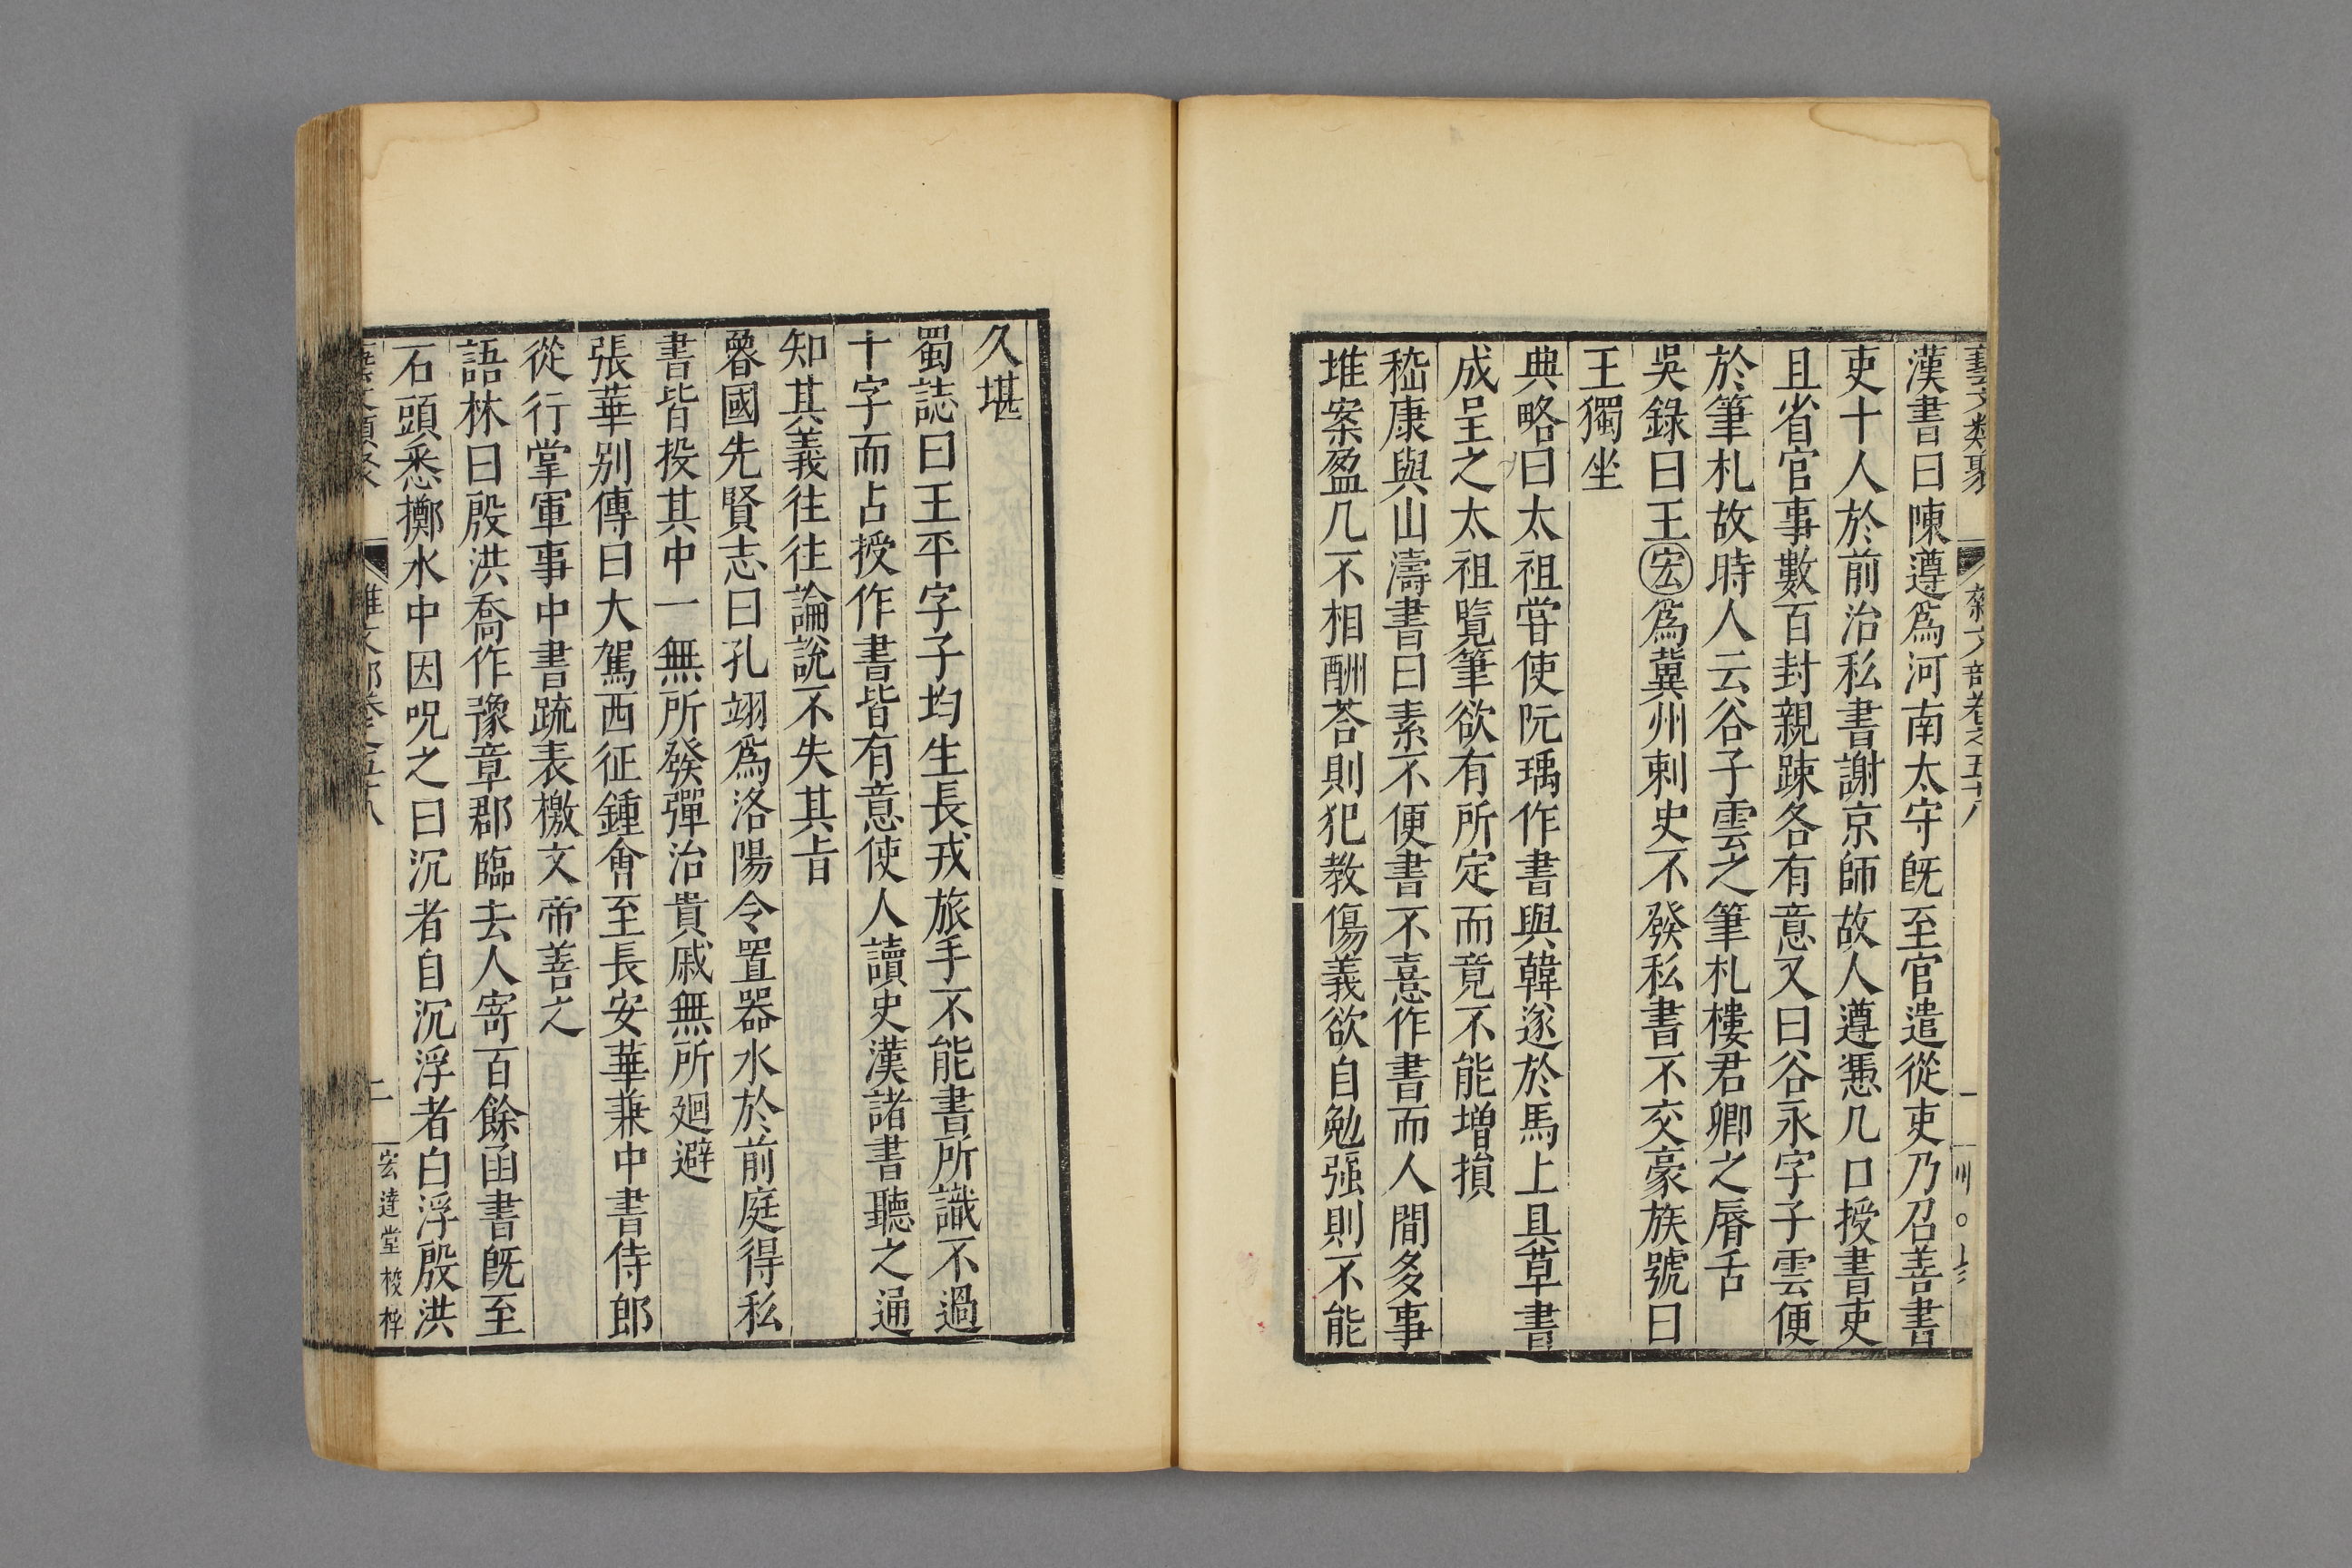 藝文類聚 雜文部卷之五十八 一
漢書曰陳遵爲河南太守旣至官遣從吏乃召善書
吏十人於前治私書謝京師故人遵憑几口授書吏
且省官事數百封親踈各有意又曰谷永字子雲便
於筆札故時人云谷子雲之筆札樓君卿之脣舌
吳錄曰王宏爲冀州刺史不發私書不交豪族號曰
王獨坐
典略曰太祖甞使阮瑀作書與韓遂於馬上具草書
成呈之太祖覽筆欲有所定而竟不能增損
嵇康與山濤書曰素不便書不憙作書而人間多事
堆案盈几不相酬荅則犯教傷義欲自勉强則不能
久堪
蜀誌曰王平字子均生長戎旅手不能書所識不過
十字而占授作書皆有意使人讀史漢諸書聽之通
知其義往往論說不失其旨
魯國先賢志曰孔翊爲洛陽令置器水於前庭得私
書皆投其中一無所發彈治貴戚無所廻避
張華别傳曰大駕西征鍾會至長安華兼中書侍郎
從行掌軍事中書疏表檄文帝善之
語林曰殷洪喬作豫章郡臨去人寄百餘函書旣至
石頭悉擲水中因呪之曰沉者自沉浮者自浮殷洪
藝文類聚 雜文部卷之五十八 二 宏達堂校梓